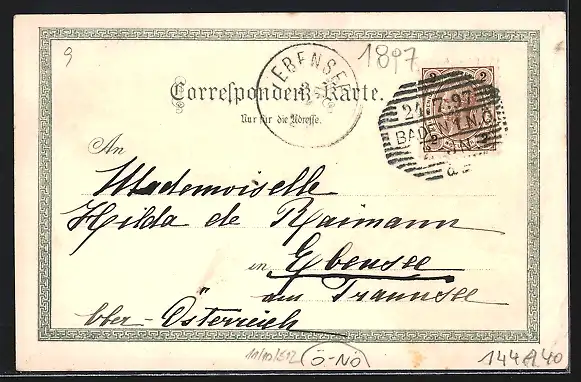 9
1897
EBENSEE
2 2
24.7.97
BADEN 1. N.Ö.
Correspondenz-Karte.
Nur für die Adresse.
An
Mademoiselle
Hilda de Raimann
in Ebensee
am Traunsee
Ober-Österreich
Ö-NÖ
144